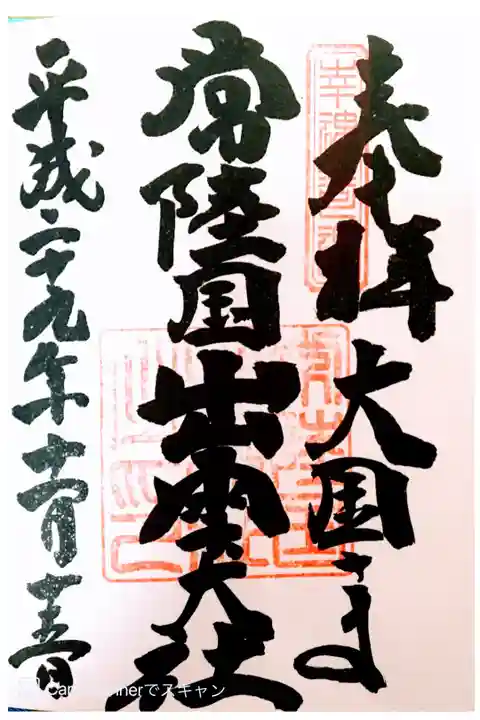 奉拝 大国さま
常陸国出雲大社
平成二十九年十一月十五日
CamScannerでスキャン